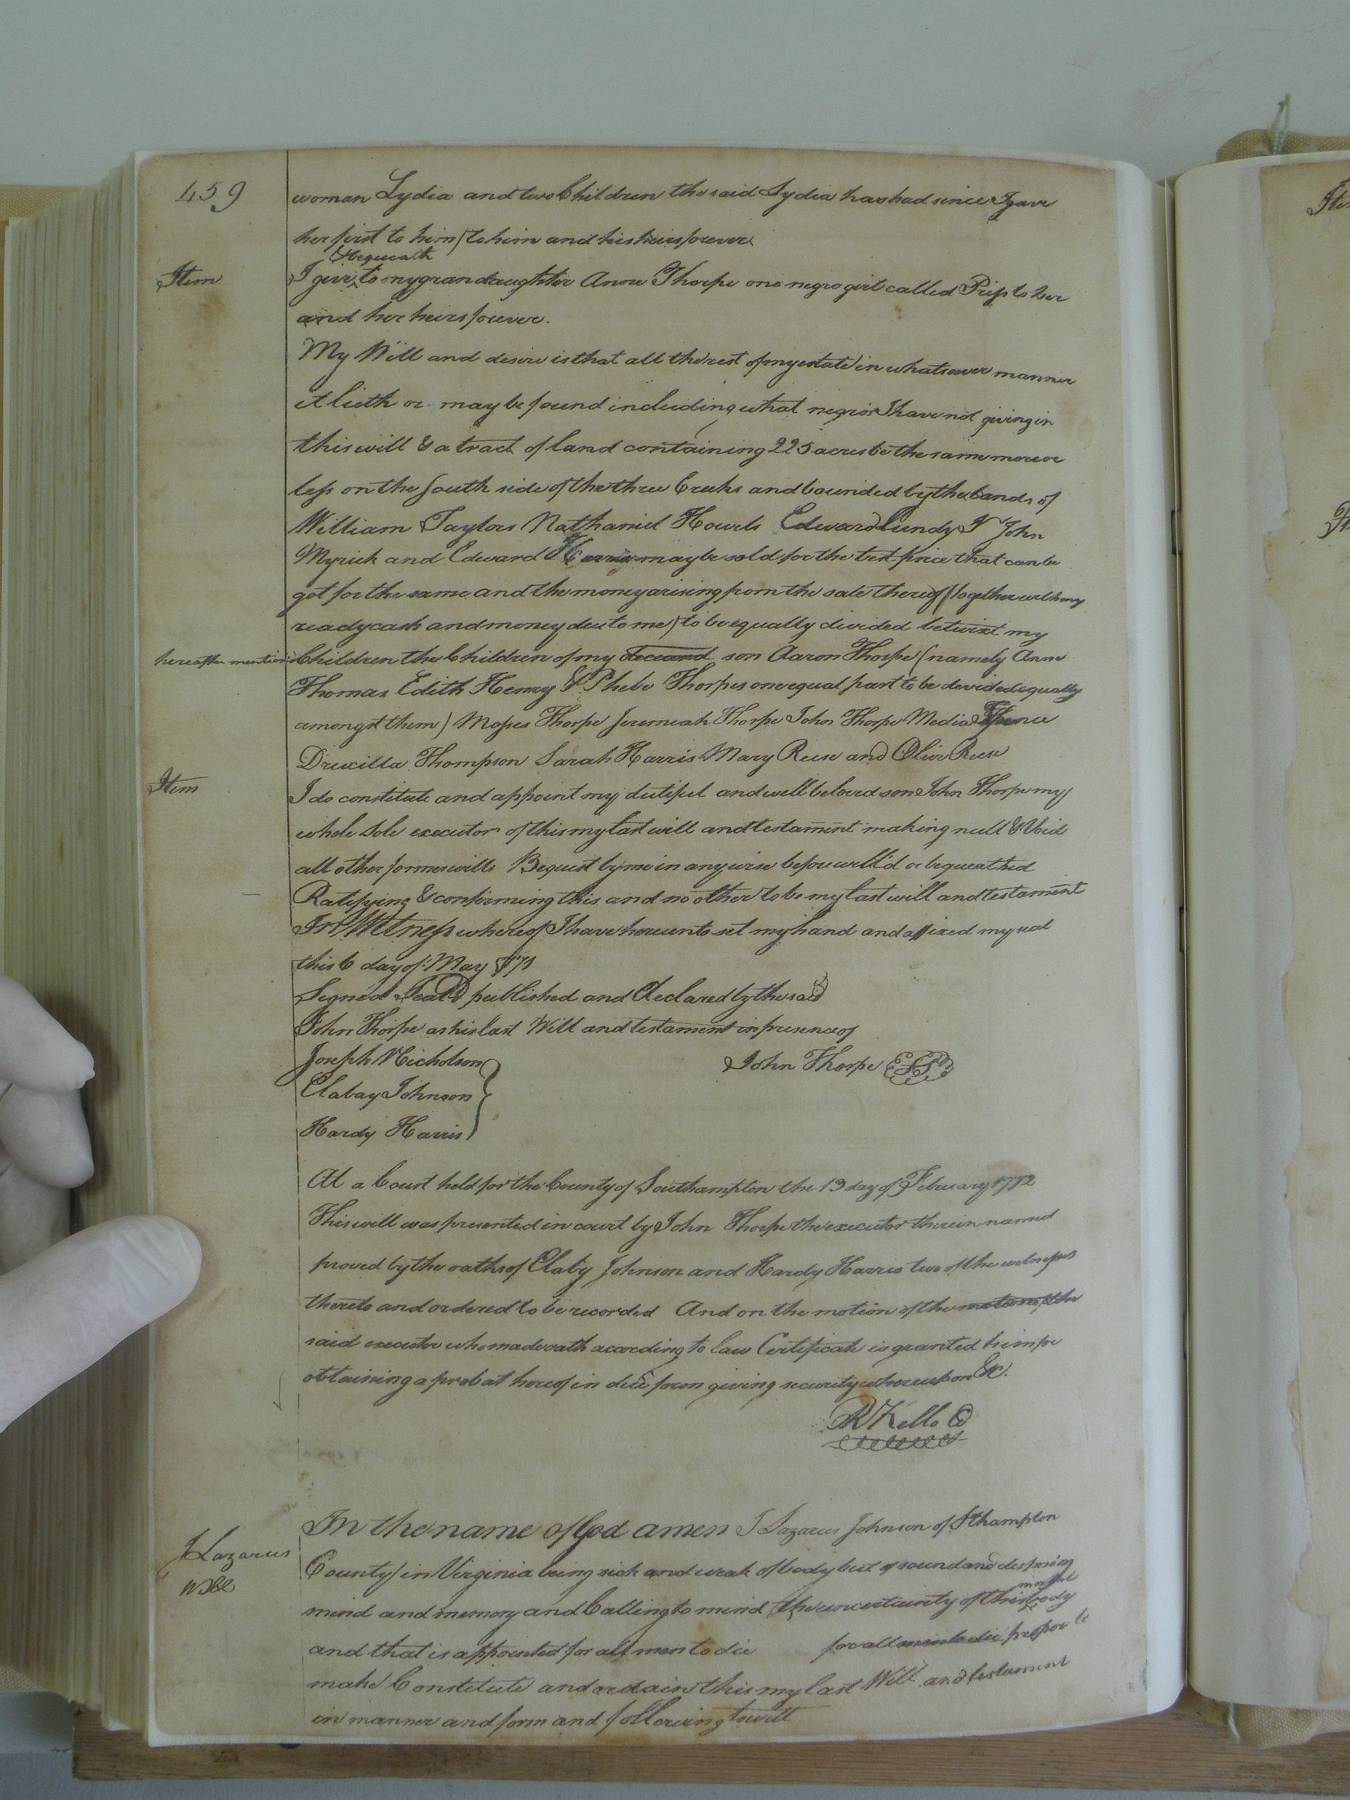 459
woman Lydia and two Children the said Lydia has had since I gave
her first to him) to him and his heirs forever
Item
Bequeath
I give to my grandaughter Anne Thorpe one negro girl called Priss to her
and her heirs forever.
My Will and desire is that all the rest of my estate in whatsoever manner
it lieth or may be found including what negros I have not giving in
this will & a tract of land containing 225 acres be the same more or
less on the South side of the three Creeks and bounded by the Lands of
William Taylors Nathaniel Howels Edward Lundy John
Myrick and Edward Harris may be sold for the best price that can be
got for the same and the money arising from the sale thereof (together with my
ready cash and money due to me) to be equally divided betwixt my
hereafter mention'd Children the Children of my deceased son Aaron Thorpe (namely Ann
Thomas Edith Henry & Phebe Thorpes one equal part to be devided equally
amongst them) Moses Thorpe Jeremiah Thorpe John Thorpe Media
Druxilla Thompson Sarah Harris Mary Reese and Olive Reese
Item
I do constitute and appoint my dutiful and well beloved son John Thorpe my
whole sole executor of this my last will and testament making null & Void
all other former wills Bequest by me in any wise before will'd or bequeathed
Ratifying & confirming this and no other to be my last will and testament
In Witness whereof I have hereunto set my hand and affixed my seal
this 6 day of May 1771
Signed Seal'd published and Declared by the said
John Thorpe as his last Will and testament in presence of
Joseph Nicholson
John Thorpe LS
Elabay Johnson
Hardy Harris
At a Court held for the County of Southampton the 13 day of February 1772
This will was presented in court by John Thorpe the executor therein named
proved by the oaths of Elaby Johnson and Hardy Harris two of the witnesses
thereto and ordered to be recorded And on the motion of the motion of the
said executor who made oath according to Law Certificate is granted him for
obtaining a probat hereof in due form giving security whereupon &c.
R Kello C
In the name of God amen I Lazarus Johnson of Sthampton
J Lazarus
Will
County in Virginia being sick and weak of body but of sound and desposing
mind and memory and Calling to mind the uncertainty of this mortal body
and that is appointed for all men to die for all men to die
make Constitute and ordain this my last Will and testament
in manner and form and following towill